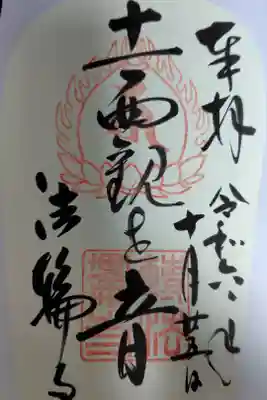 奉拝 令和六年
十月廿五日
十一面観世音
法輪寺